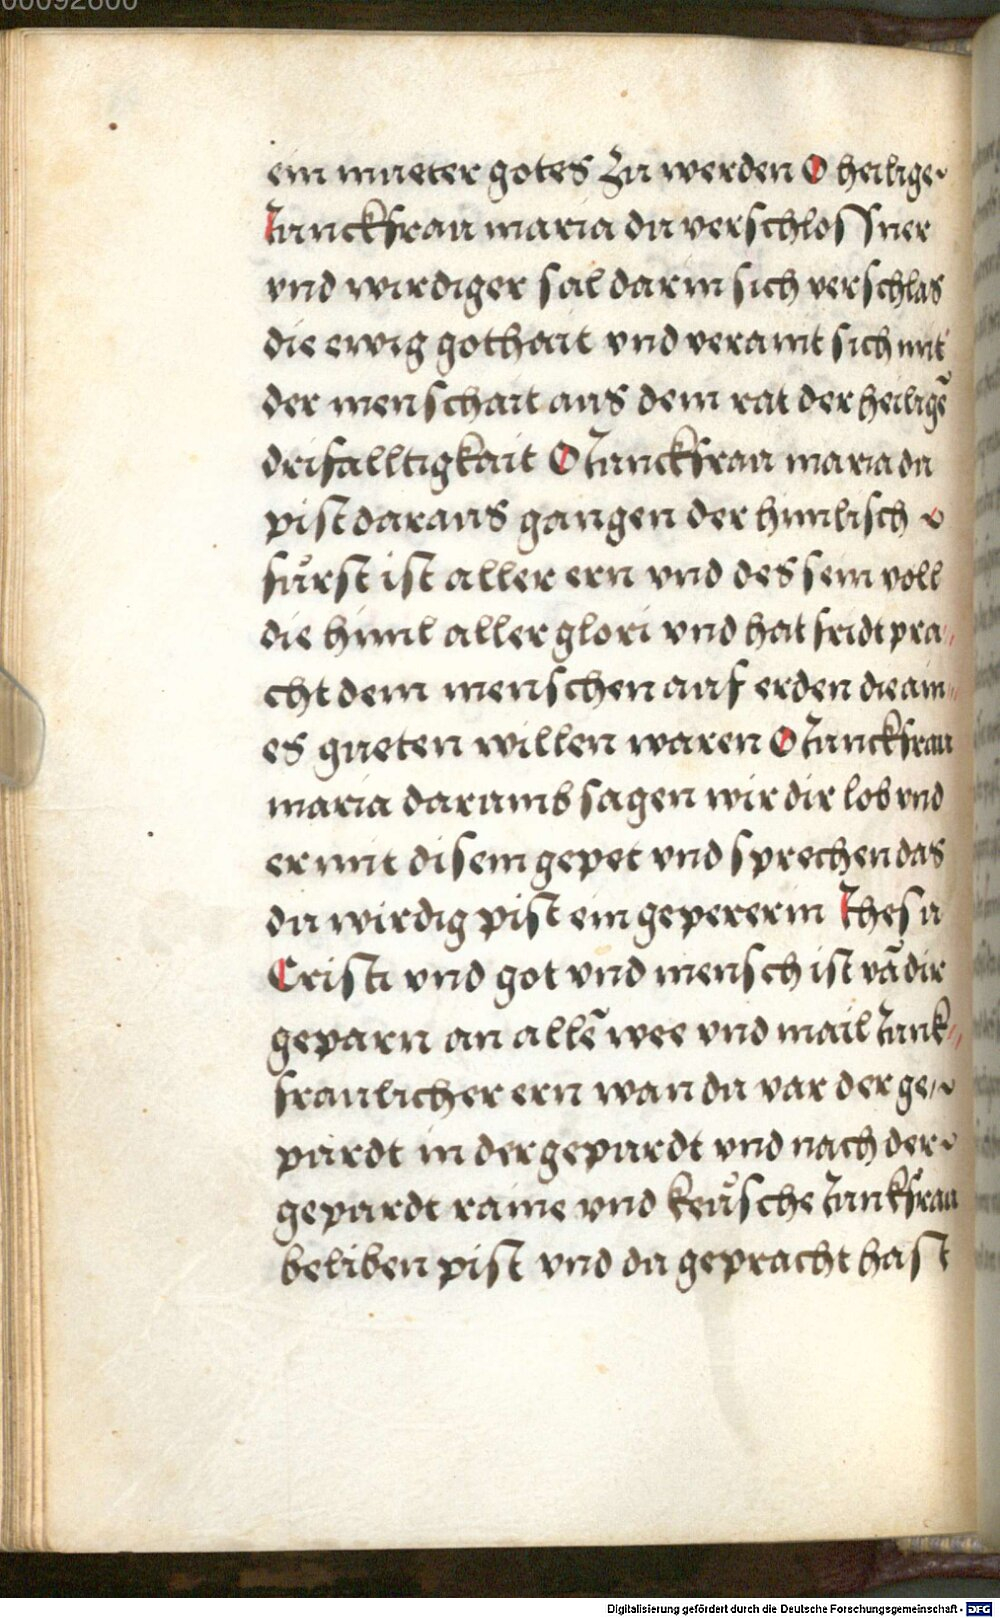 00092800
ein mueter gotes Zu werden O heilige
Junckfrau maria du verschlossner
vnd wirdiger sal darin sich verschlas
die ewig gothait vnd veraint sich mit
der menschait aus dem rat der heiligē
drifalltigkait O Junckfrau maria du
pist daraus gangen der himlisch
fürst ist aller ern vnd des sein voll
die himl aller glori vnd hat fridt pra„
cht dem menschen auf erden die ain„
es gueten willen waren O Junckfrau
maria darumb sagen wir dir lob vnd
er mit disem gepet vnd sprechen das
du wirdig pist ein gepererin Jhesu
Cristi vnd got vnd mensch ist vā dir
geparn an allē wee vnd mail Junk„
fraulicher ern wan du var der ge„
purdt in der gepurdt vnd nach der
gepurdt raine vnd keüsche Junkfrau
beliben pist vnd du gepracht hast
Digitalisierung gefördert durch die Deutsche Forschungsgemeinschaft - DFG